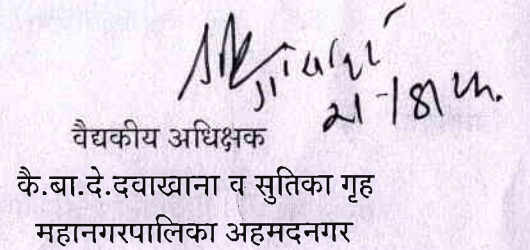 वैद्यकीय अधिक्षक
कै.बा.दे.दवाखाना व सुतिका गृह
महानगरपालिका अहमदनगर